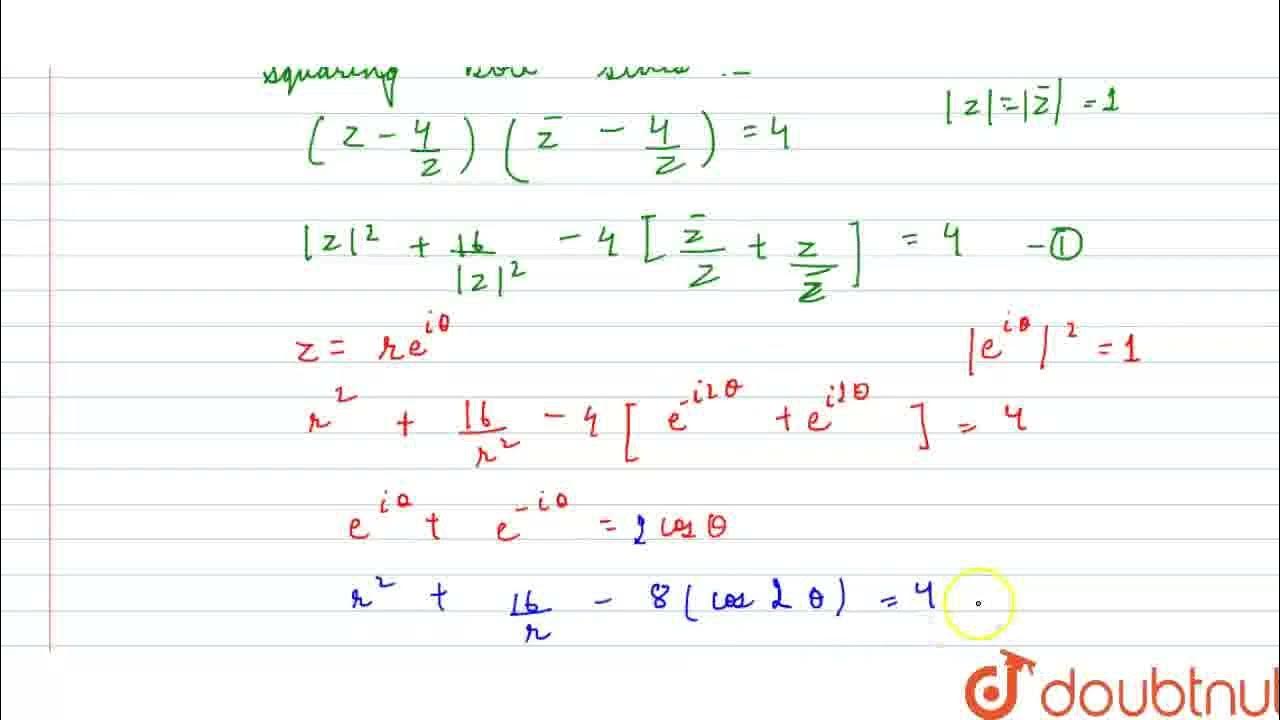 squaring
(z - 4/z) (z̄ - 4/z) = 4
|z| = |z̄| = 1
|z|² + 16/|z|² - 4 [z̄/z + z/z̄] = 4 - ①
z = re^{iθ}
|e^{iθ}|² = 1
r² + 16/r² - 4 [e^{-i2θ} + e^{i2θ}] = 4
e^{iθ} + e^{-iθ} = 2 cos θ
r² + 16/r - 8 (cos 2θ) = 4
doubtnut